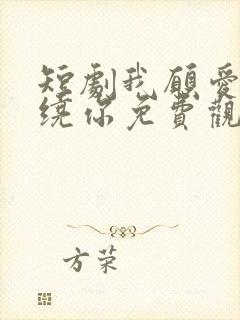 短劇我願愛
繞你免費觀
方荣